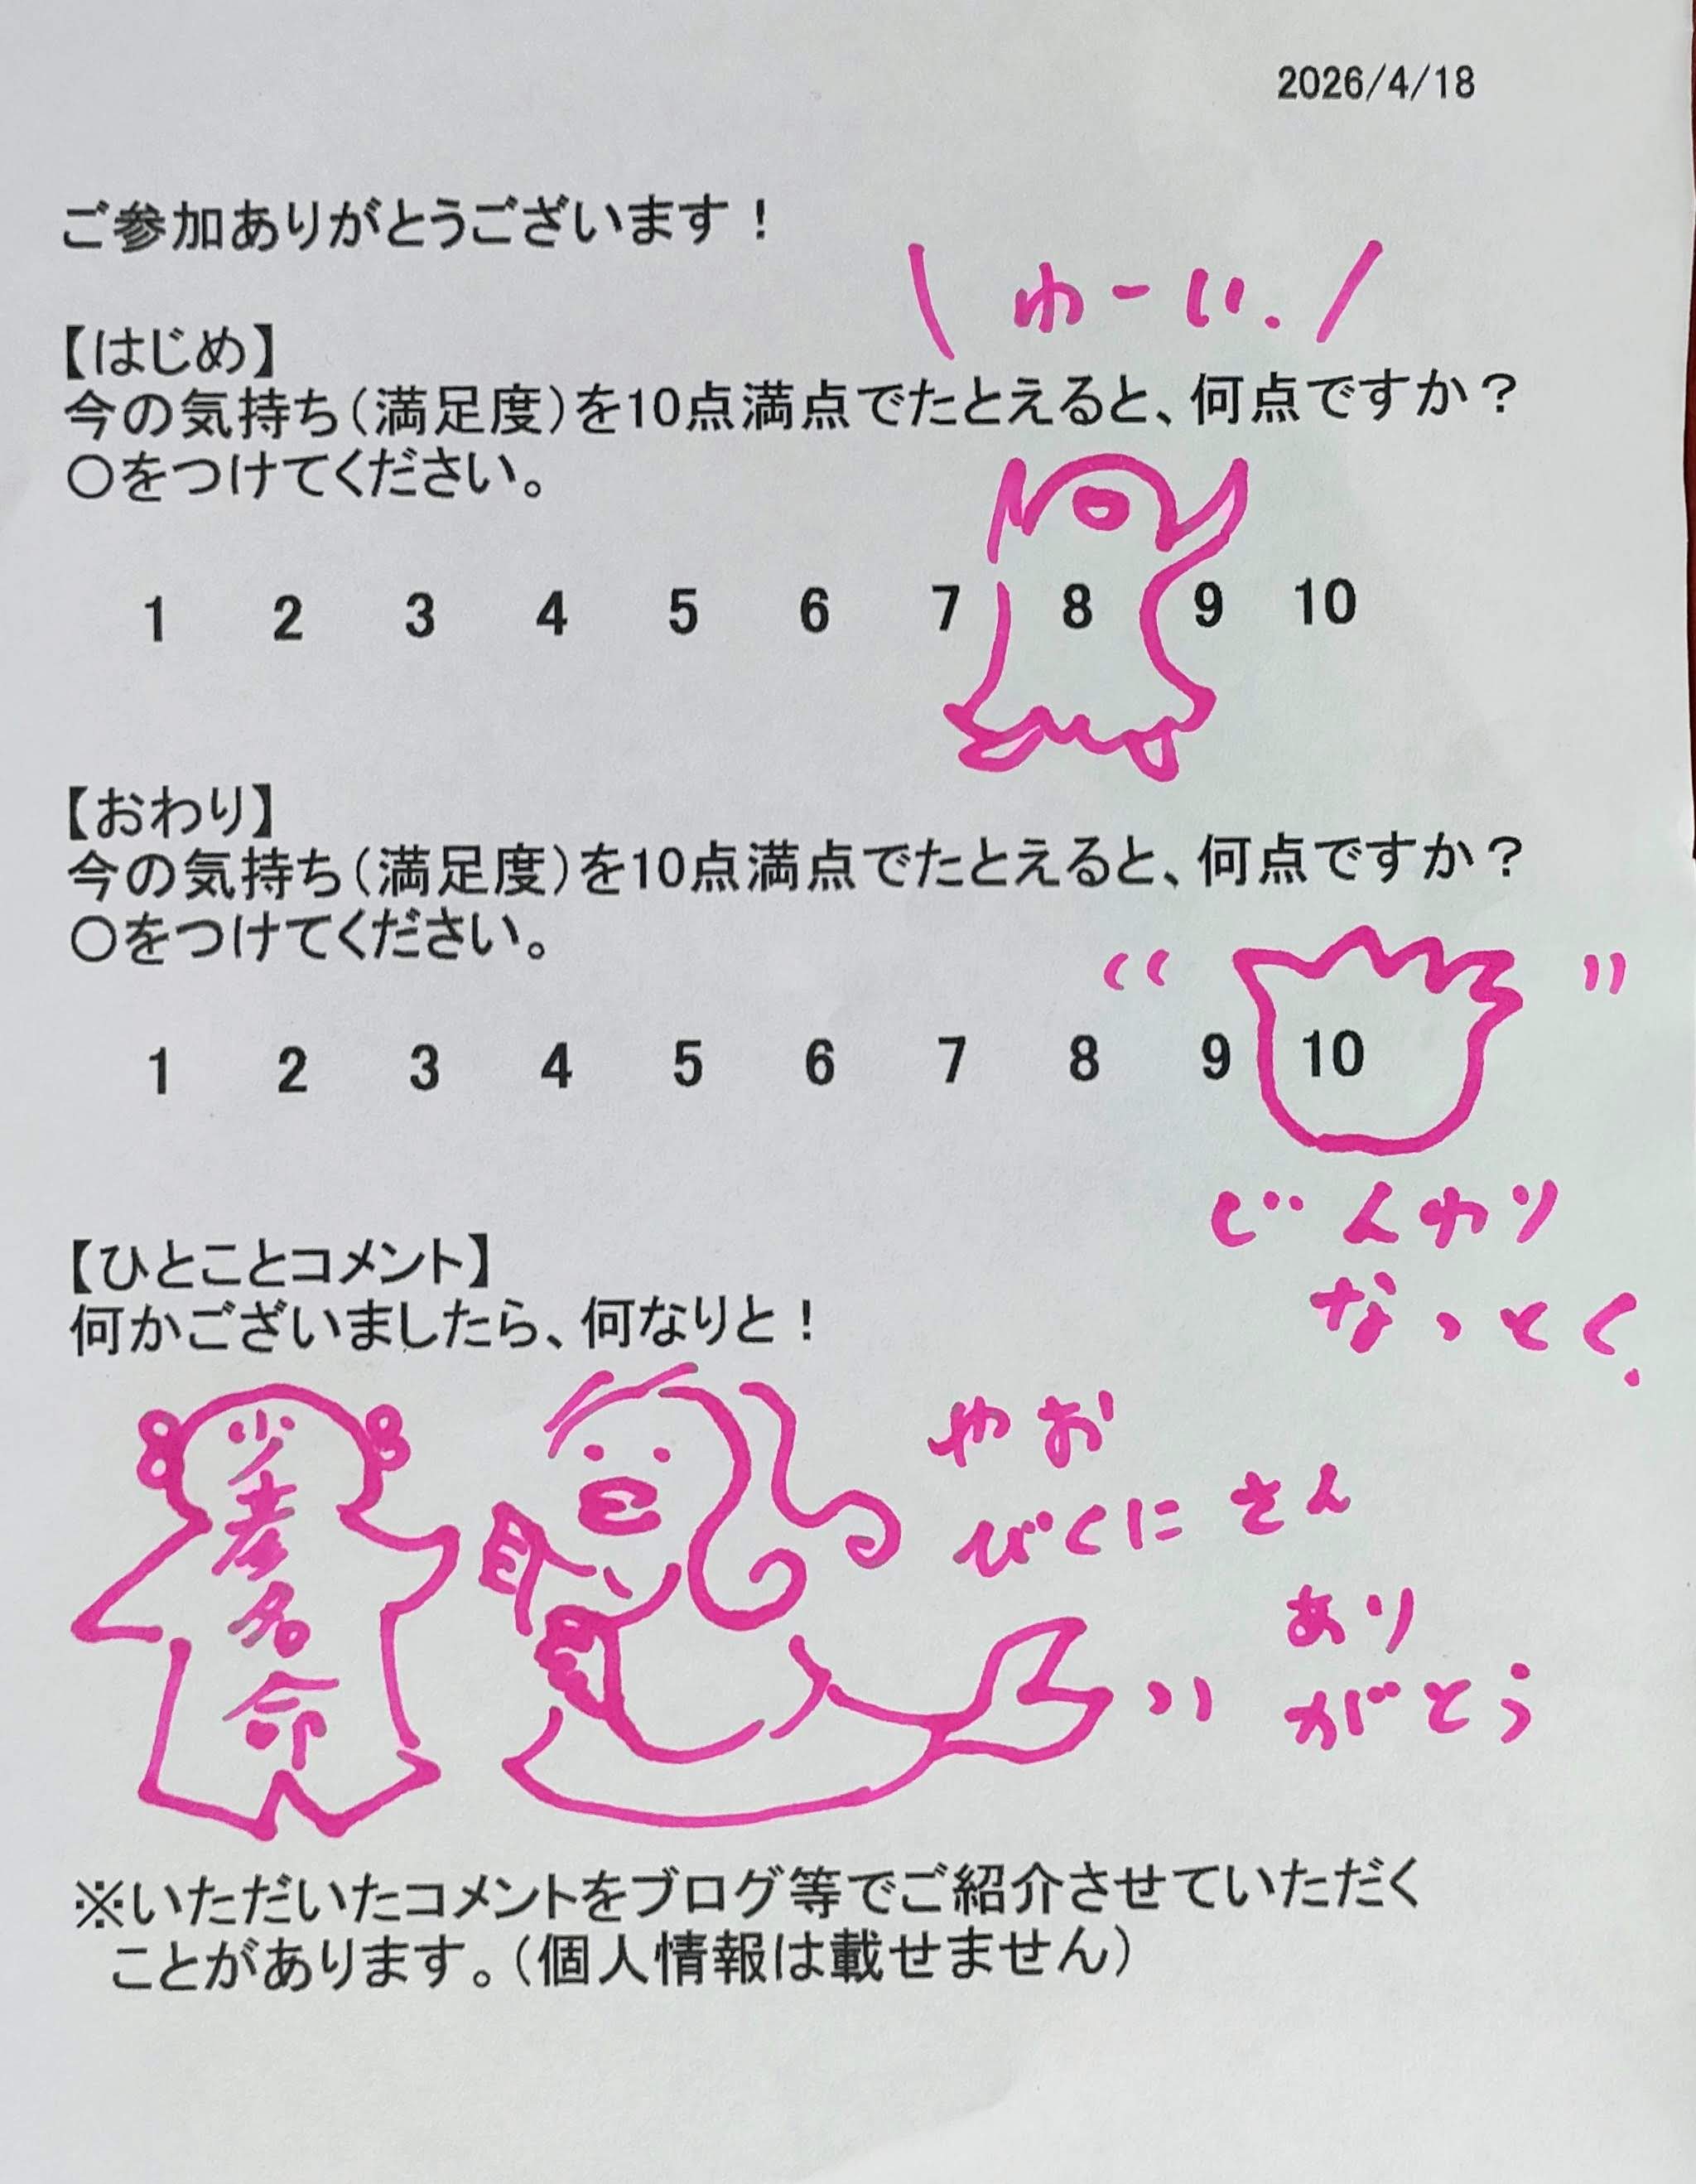 2026/4/18
ご参加ありがとうございます！
わーい.
【はじめ】
今の気持ち（満足度）を10点満点でたとえると、何点ですか？
○をつけてください。
1 2 3 4 5 6 7 8 9 10
【おわり】
今の気持ち（満足度）を10点満点でたとえると、何点ですか？
○をつけてください。
1 2 3 4 5 6 7 8 9 10
じんわり
なっとく.
【ひとことコメント】
何かございましたら、何なりと！
少
彦
名
命
やお
びくにさん
あり
がとう
※いただいたコメントをブログ等でご紹介させていただく
ことがあります。（個人情報は載せません）